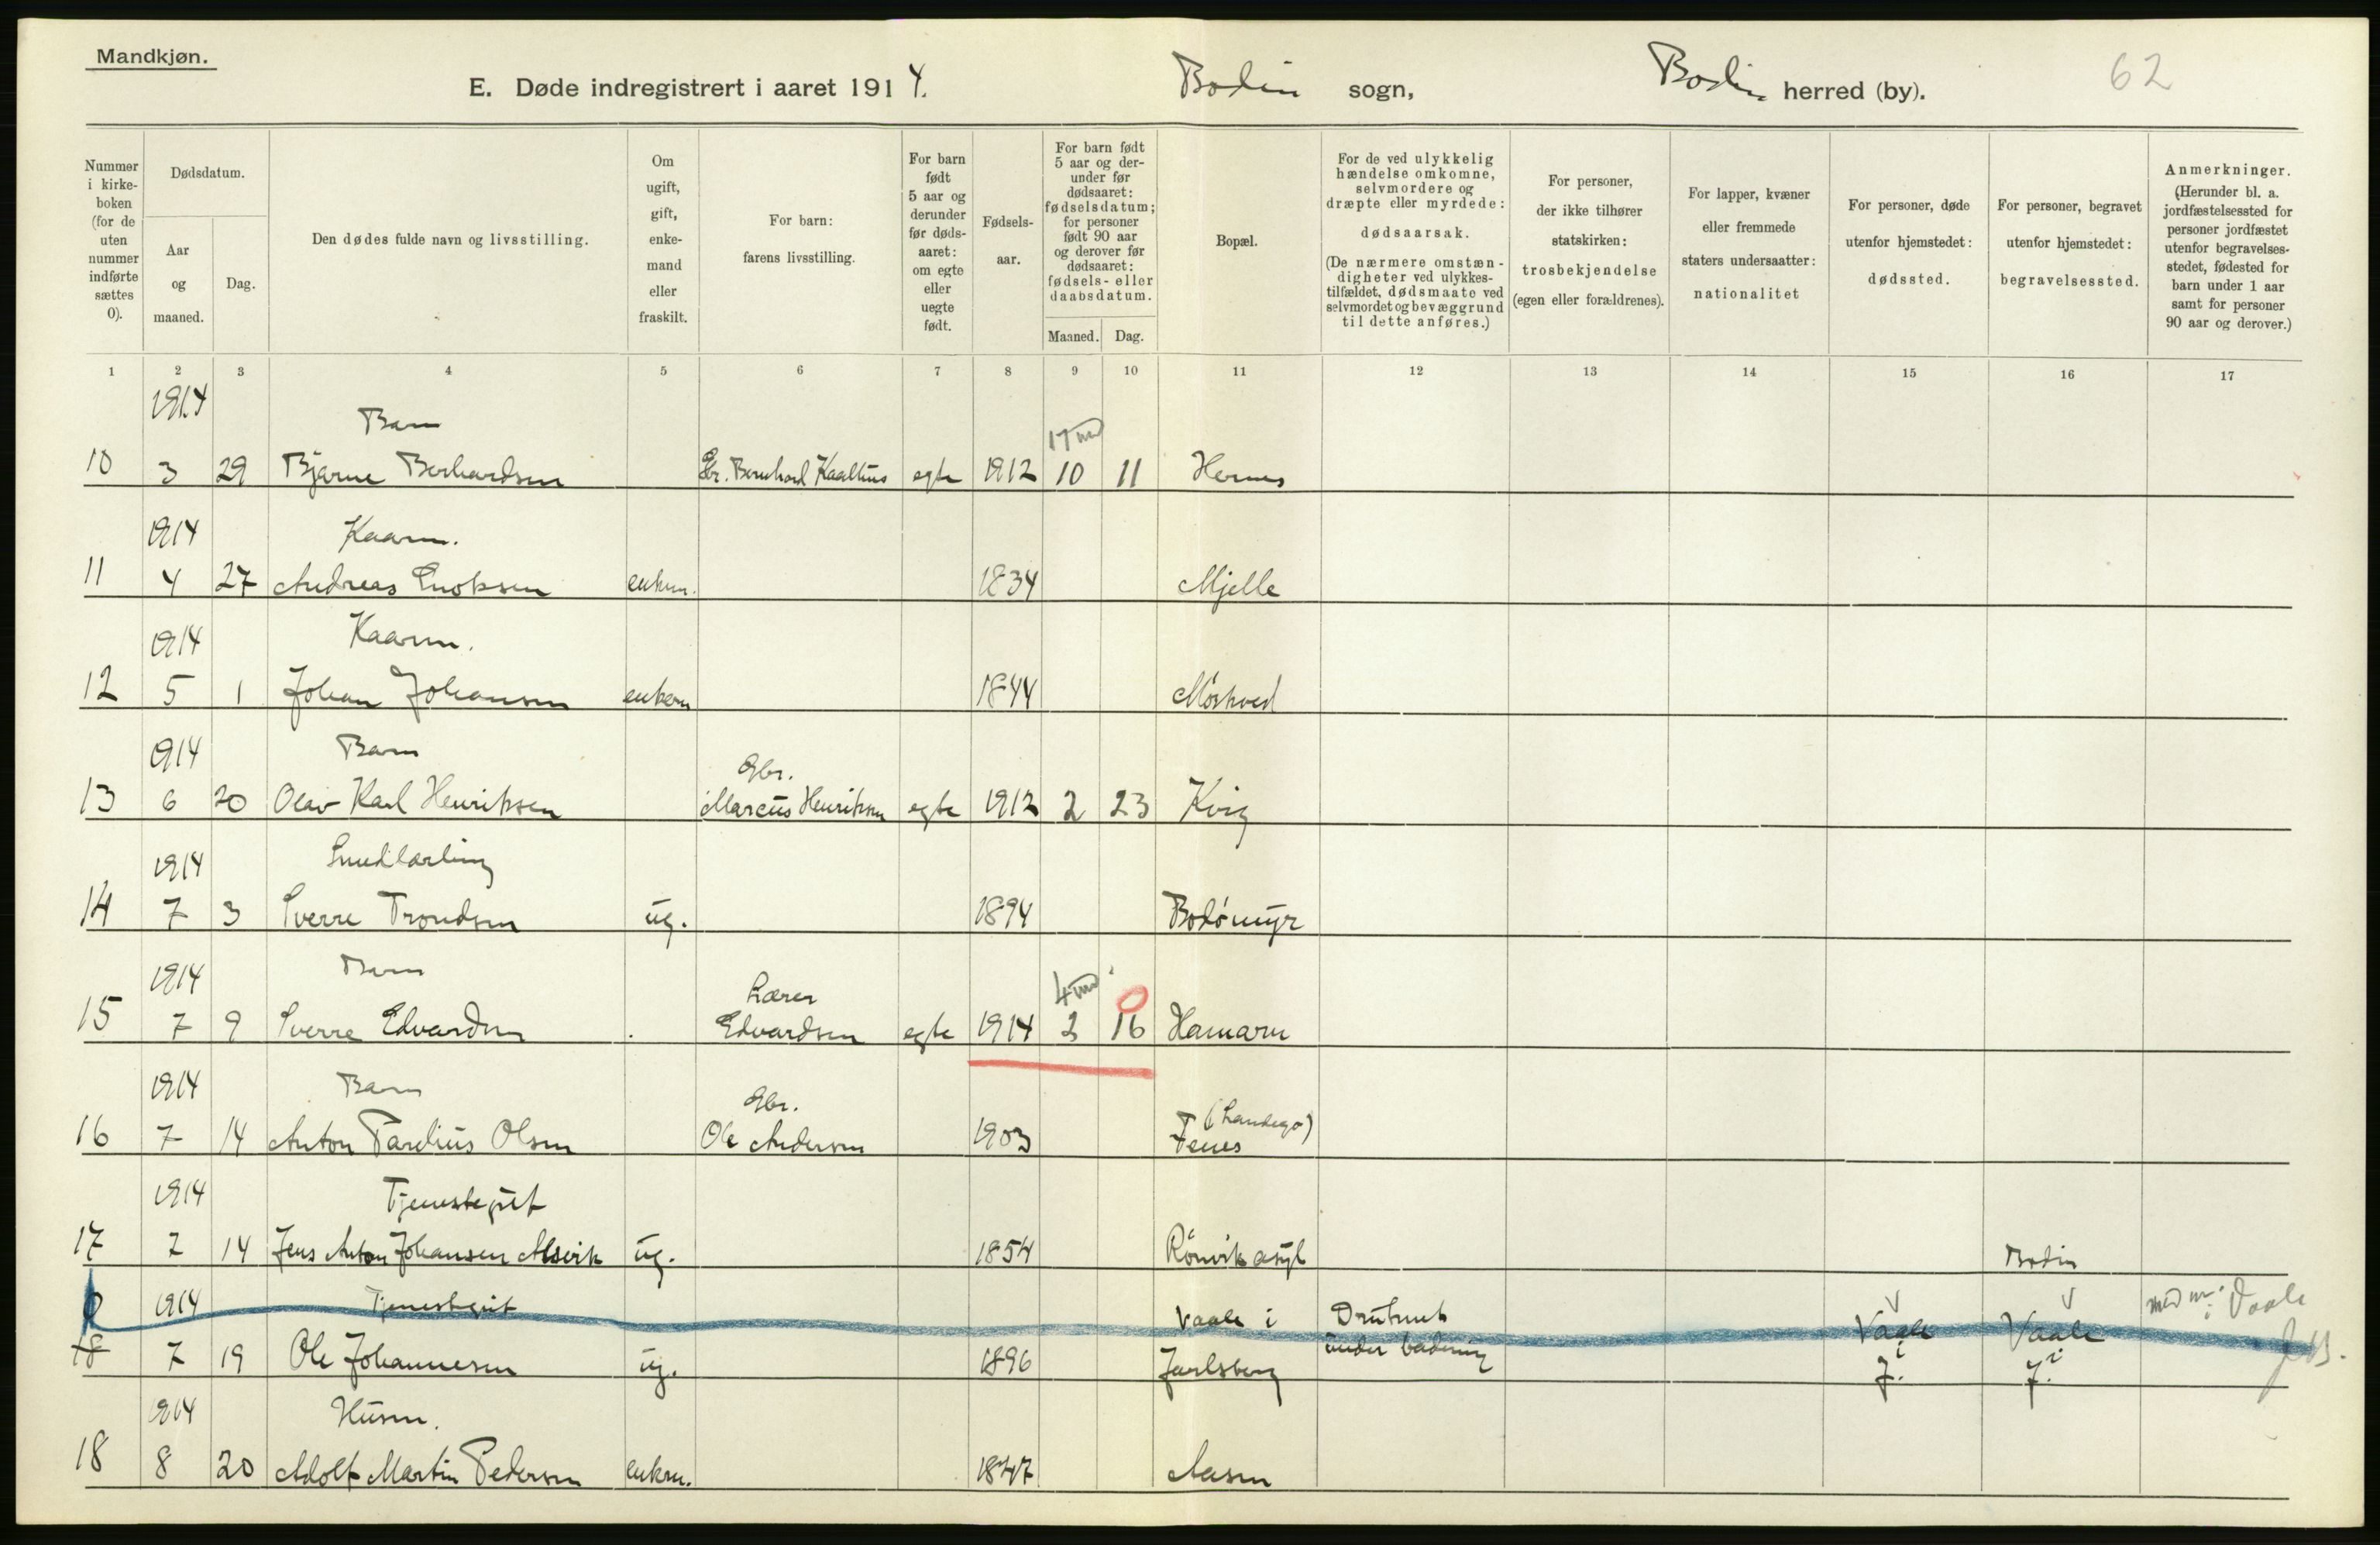 Mandkjøn.
E. Døde indregistrert i aaret 1914. Bodin sogn, Bodin herred (by). 62
Nummer i kirke- boken (for de uten nummer indførte sættes 0).
Dødsdatum.
Aar og maaned.
Dag.
Den dødes fulde navn og livsstilling.
Om ugift, gift, enke- mand eller fraskilt.
For barn: farens livsstilling.
For barn født 5 aar og derunder før døds- aaret: om egte eller uegte født.
Fødsels- aar.
For barn født 5 aar og der- under før dødsaaret: fødselsdatum; for personer født 90 aar og derover før dødsaaret: fødsels- eller daabsdatum.
Maaned. Dag.
Bopæl.
For de ved ulykkelig hændelse omkomne, selvmordere og dræpte eller myrdede: dødsaarsak. (De nærmere omstæn- digheter ved ulykkes- tilfældet, dødsmaate ved selvmordet og bevæggrund til dette anføres.)
For personer, der ikke tilhører statskirken: trosbekjendelse (egen eller forældrenes).
For lapper, kvæner eller fremmede staters undersaatter: nationalitet
For personer, døde utenfor hjemstedet: dødssted.
For personer, begravet utenfor hjemstedet: begravelsessted.
Anmerkninger. (Herunder bl. a. jordfæstelsessted for personer jordfæstet utenfor begravelses- stedet, fødested for barn under 1 aar samt for personer 90 aar og derover.)
1 2 3 4 5 6 7 8 9 10 11 12 13 14 15 16 17
1914 Barn 17 md
10 3 29 Bjarne Berhardsen Gbr. Bernhard egte 1912 10 11 Hernes
1914 Kaarm.
11 4 27 Andreas Enoksen enkem. 1834 Mjelle
1914 Kaarm.
12 5 1 Johan Johansen enkem 1844 Mørkved
1914 Barn Gbr.
13 6 20 Olav Karl Henriksen Marcus Henriksen egte 1912 2 23 Kvig
1914 Smedlærling
14 7 3 Sverre Trondsen ug. 1894 Bodømyr
1914 Barn Lærer 4 md 0
15 7 9 Sverre Edvardsen Edvardsen egte 1914 2 16 Hamarn
1914 Barn Gbr. (Landego)
16 7 14 Anton Parelius Olsen Ole Andersen 1903 Fenes
1914 Tjenestegut
17 7 14 Jens Anton Johansen Alsvik ug. 1854 Rønvik asyl Bodin
0 1914 Tjenestegut Vaale i Druknet Vaale Vaale med m. i Vaale
18 7 19 Ole Johannesen ug. 1896 Jarlsberg under badning i J. i J.
1914 Husm.
18 8 20 Adolf Martin Pedersen enkem. 1847 Aasen